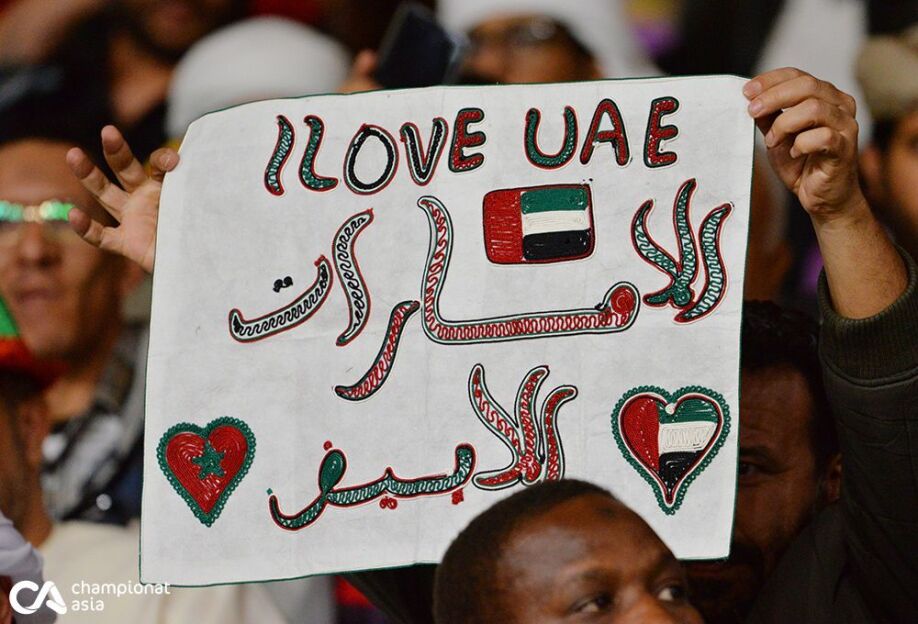 I LOVE UAE
الامارات
الابيض
championat
asia